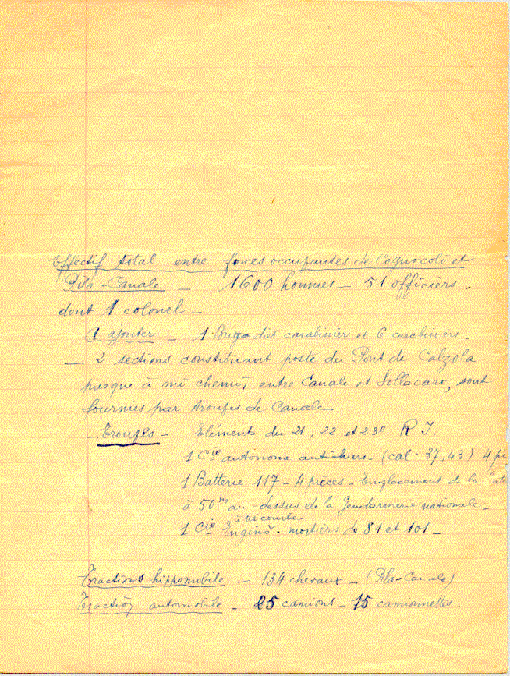 Effectif total entre forces occupantes de Cognocoli et
Pila-Canale — 1600 hommes — 51 officiers.
dont 1 colonel —
A ajouter — 1 des carabinier et 6
— 2 sections constituant poste du Pont de Calzola
presque à mi chemin, entre Canale et Sollacaro, sont
fournies par troupes de Canale.
Troupes — Elements du 21, 22 et 23e R I
1 Cie autonome (cal. 37, 43) 4
1 Batterie 117 — 4 pièces — Emplacement de la
à 50 m au-dessus de la Gendarmerie nationale —
1 Cie Engins — mortiers de 81 et 101 —
Tractions hippomobile — 134 chevaux — (Pila-Canale)
Traction automobile — 25 camions — 15 camionnettes